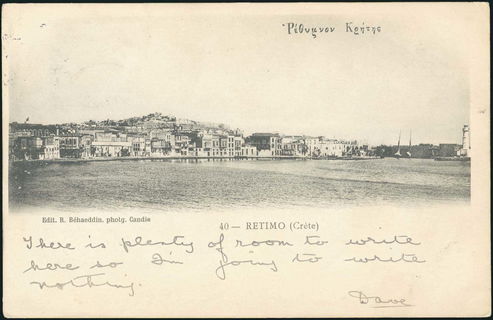 Ῥίθυμνον Κρήτης
Edit. R. Béhaeddin, photg. Candie
40 — RETIMO (Crète)
There is plenty of room to write
here so I'm going to write
nothing.
Dave